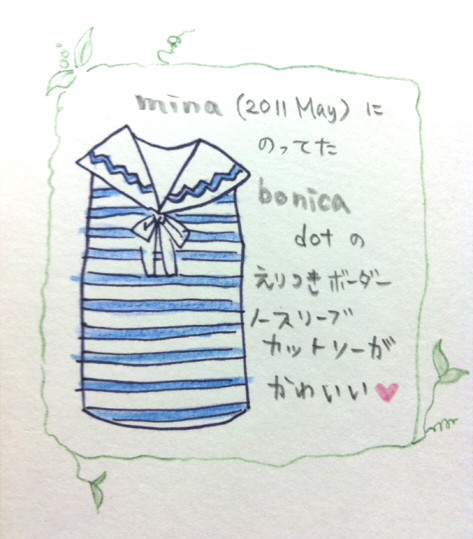 mina (2011 May) に
のってた
bonica
dot の
えりつきボーダー
ノースリーブ
カットソーが
かわいい